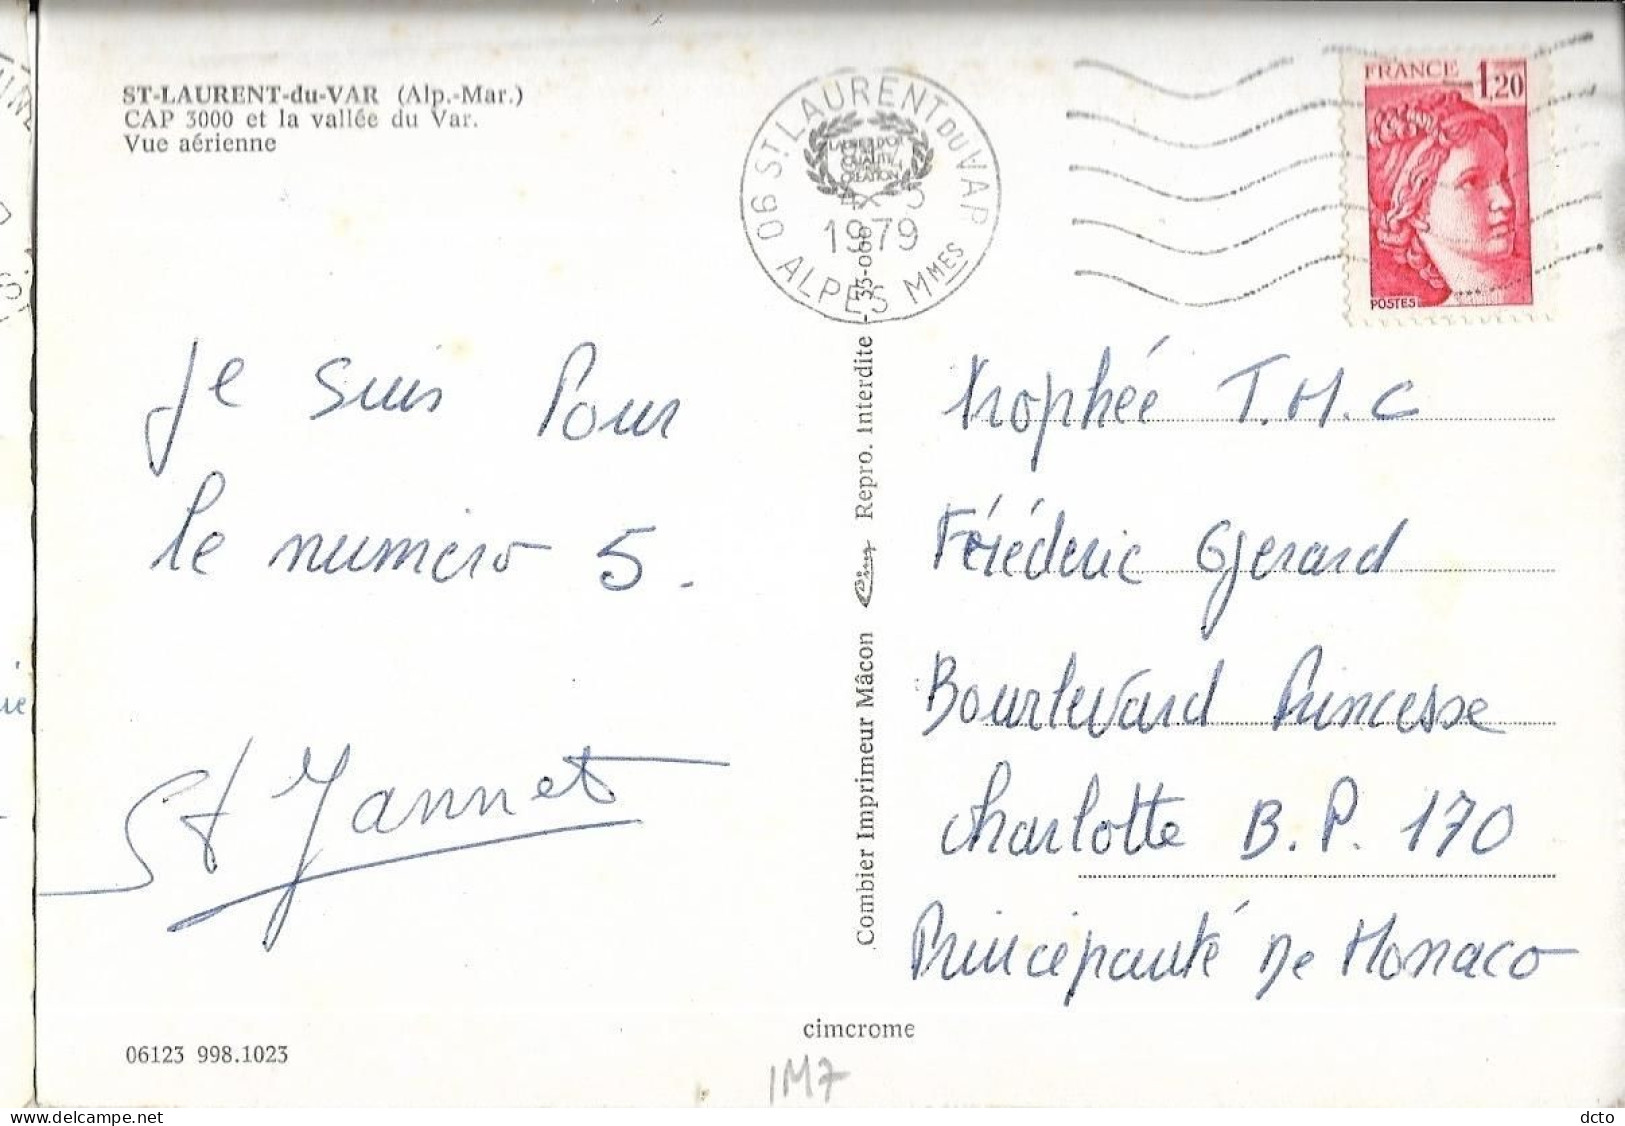 ST-LAURENT-du-VAR (Alp.-Mar.)
CAP 3000 et la vallée du Var.
Vue aérienne
06 ST LAURENT DU VAR
LAURIER D'OR
QUALITE
CREATION
1979
ALPES MMES
FRANCE 1,20
POSTES
Je suis Pour
le numéro 5.
St Jannet
Combier Imprimeur Mâcon Cim Repro. Interdite - 33-000
trophée T.M.C
Férédéric Gjerard
Bourlevard Princesse
Charlotte B.P. 170
Principauté De Monaco
06123 998.1023
cimcrome
1M7
dcto
www.delcampe.net